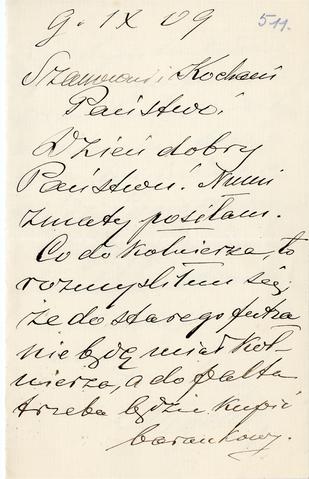 9. IX 09 511.
Szanowni i Kochani
Państwo!
Dzień dobry
Państwu! Numi
zmaty posłam.
Co do kołnierza, to
rozmyśliłem się;
że do starego futra
nie będę miał koł-
nierza, a do palta
trzeba będzie kupić
barankowy.